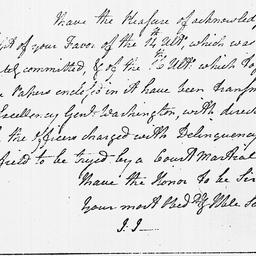 have the Pleasure of acknowled
pt of your Favor of the 4th Ulto. which was
committed, & of the 6 Ulto. which tog
Papers enclosed in it have been transm
Excellency Genl. Washington, with direct
the Officers charged with Delinquency
field to be tryed by a Court Martial
I have the Honor to be Sir
your most Obed & Hble Se
J. J—